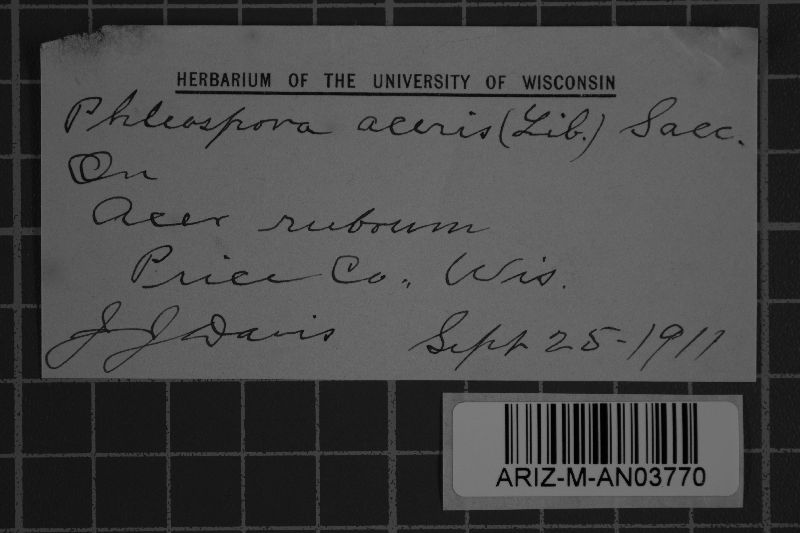 HERBARIUM OF THE UNIVERSITY OF WISCONSIN
Phleospora aceris (Lib.) Sacc.
On
Acer rubrum
Price Co., Wis.
J J Davis Sept 25-1911
ARIZ-M-AN03770